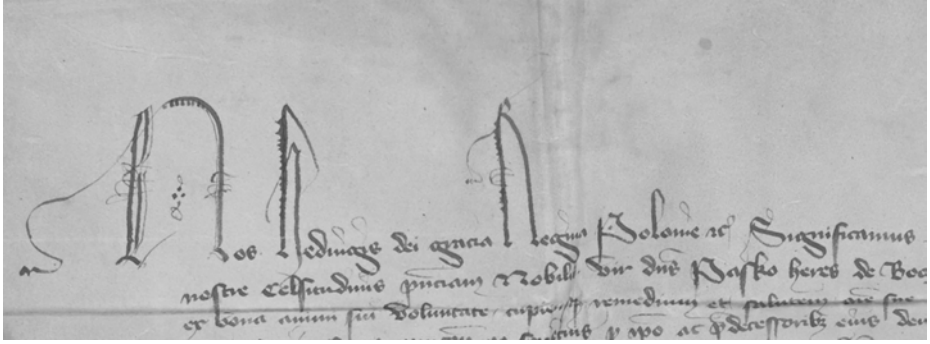 Nos Hedwigis dei gracia Regina Polonie etc Significamus
nostre Celsitudinis pnciam Nobilis vir dns Pasko heres de Bog
ex bona animi sui voluntate cupiens remedium et salutem aie sue
p ipo ac pdecessoribz eius